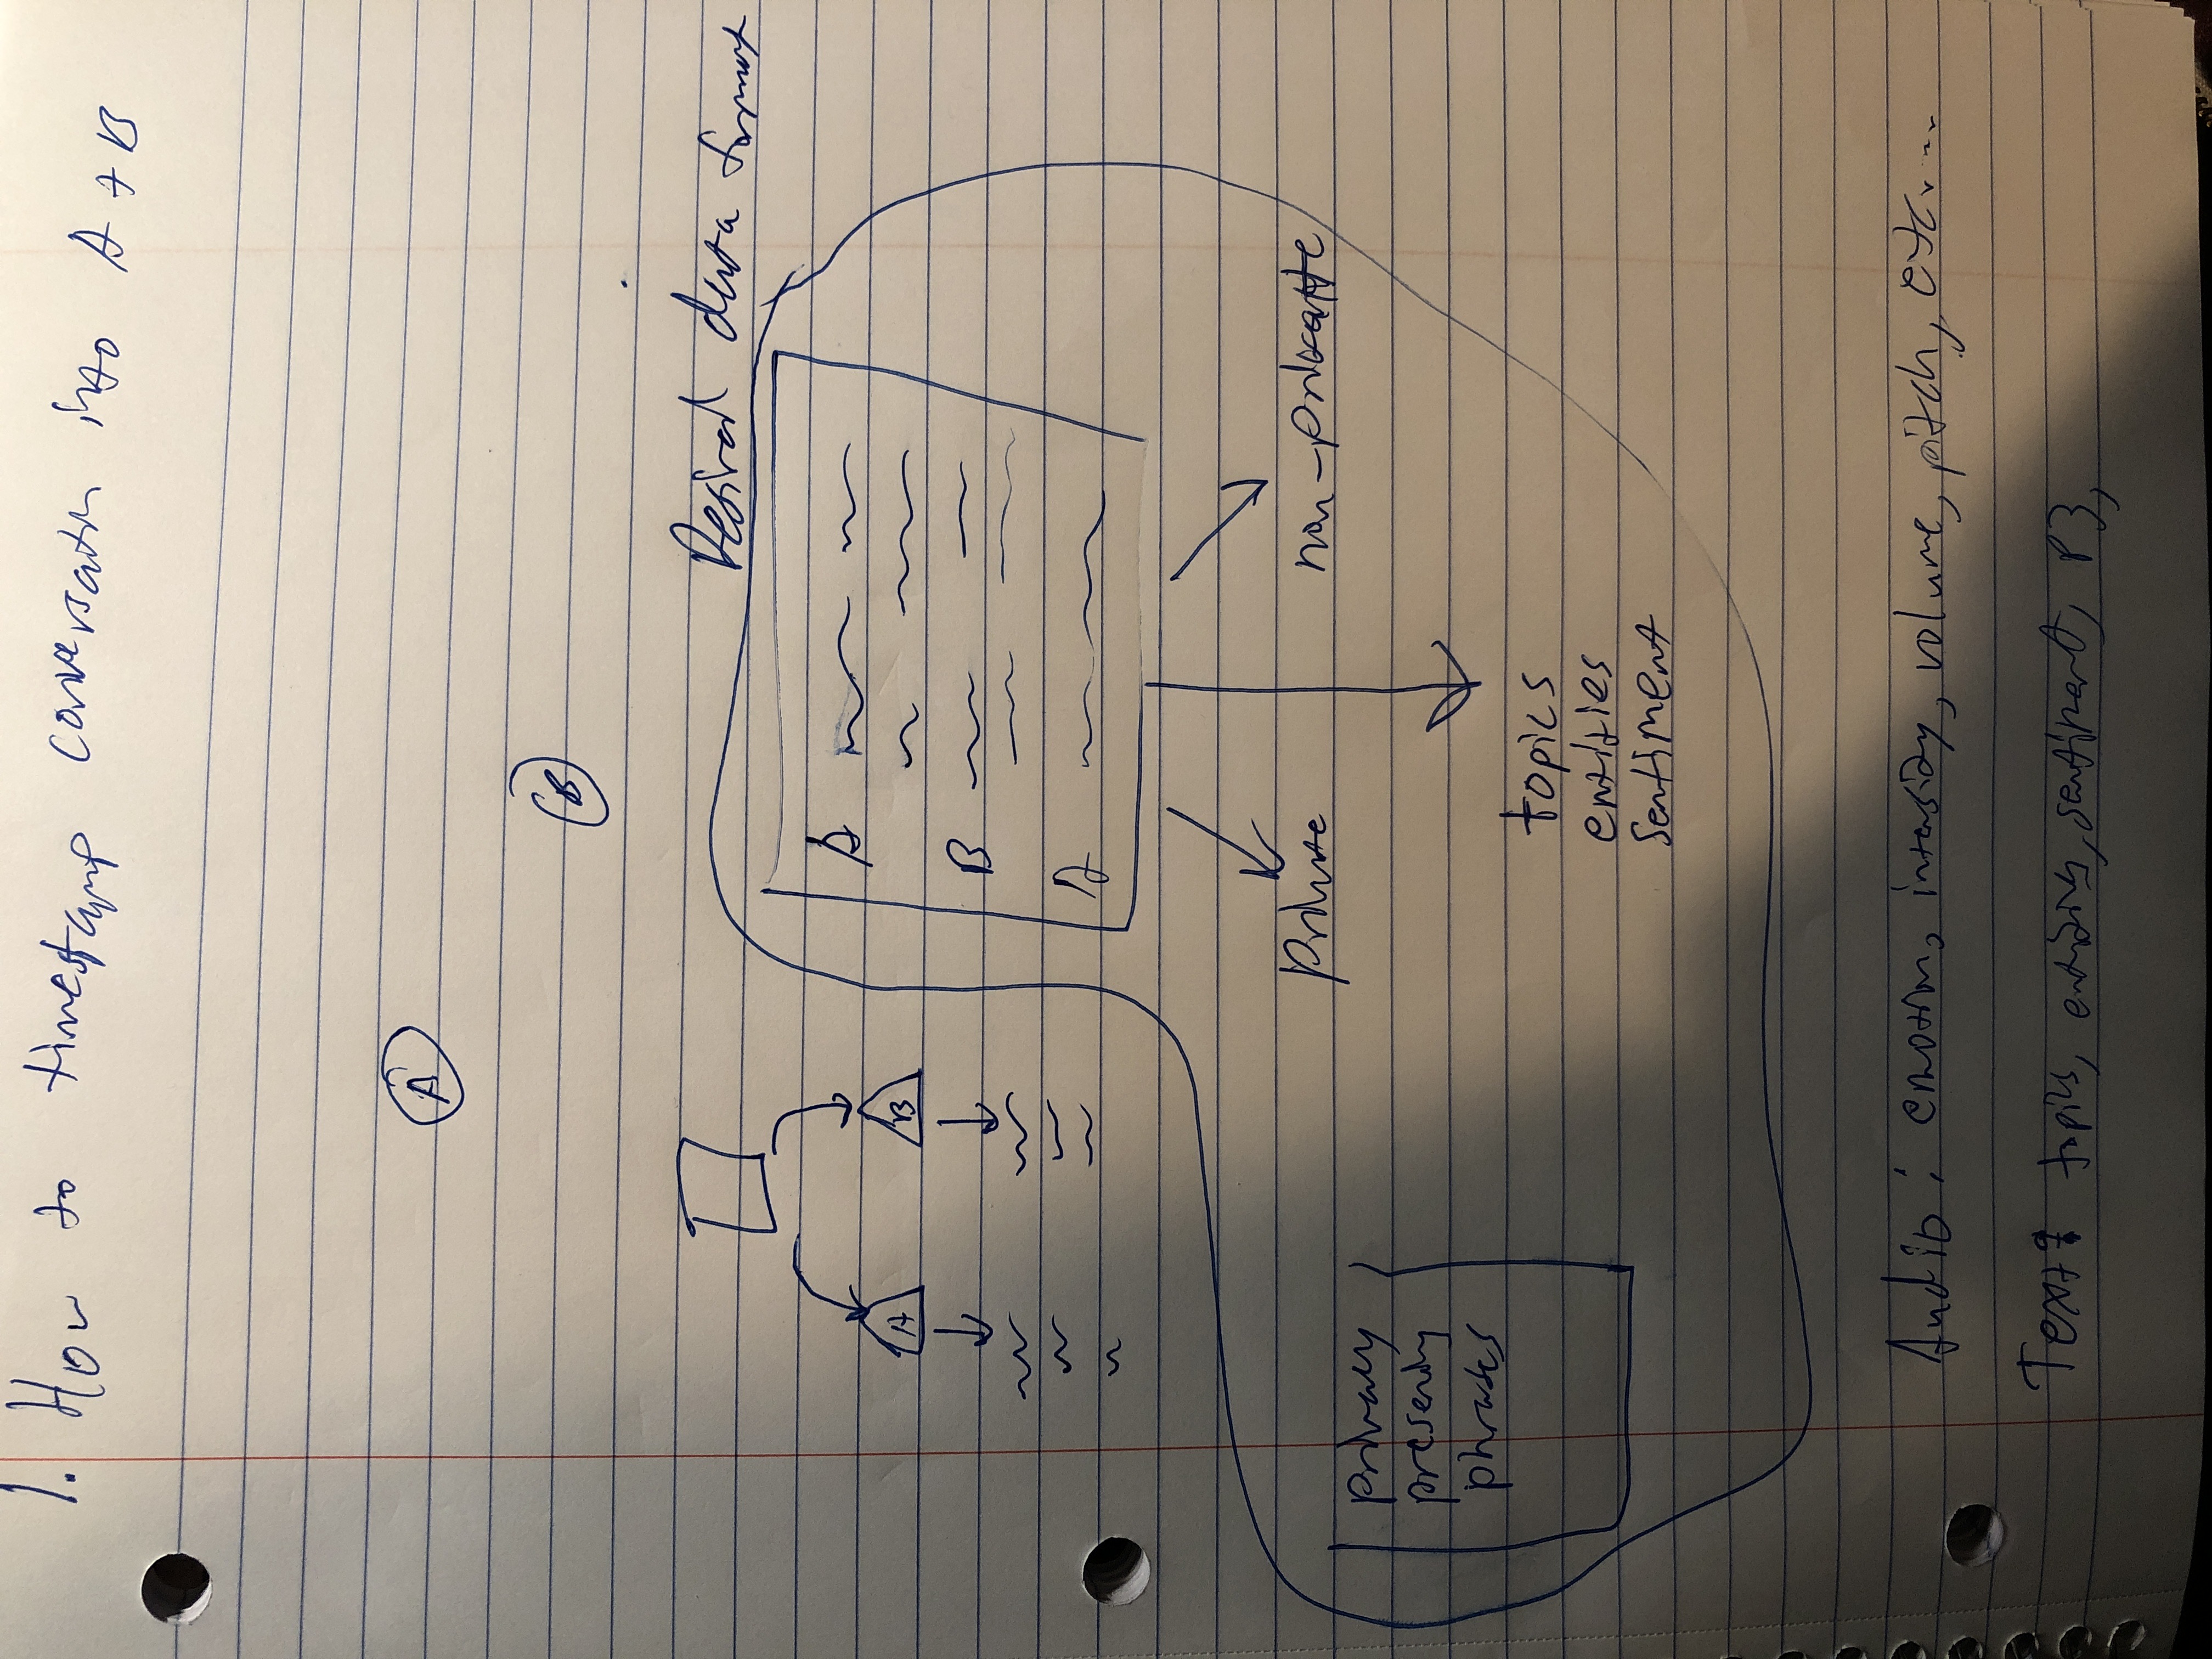 1. How to timestamp conversatin into A + B
A
B
Desired data format
A B
A
B
A
private non-private
privacy
preserving
phrases
topics
entities
sentiment
Audio: emotion, intensity, volume, pitch, etc....
Text: topics, entities, sentiment, P3,